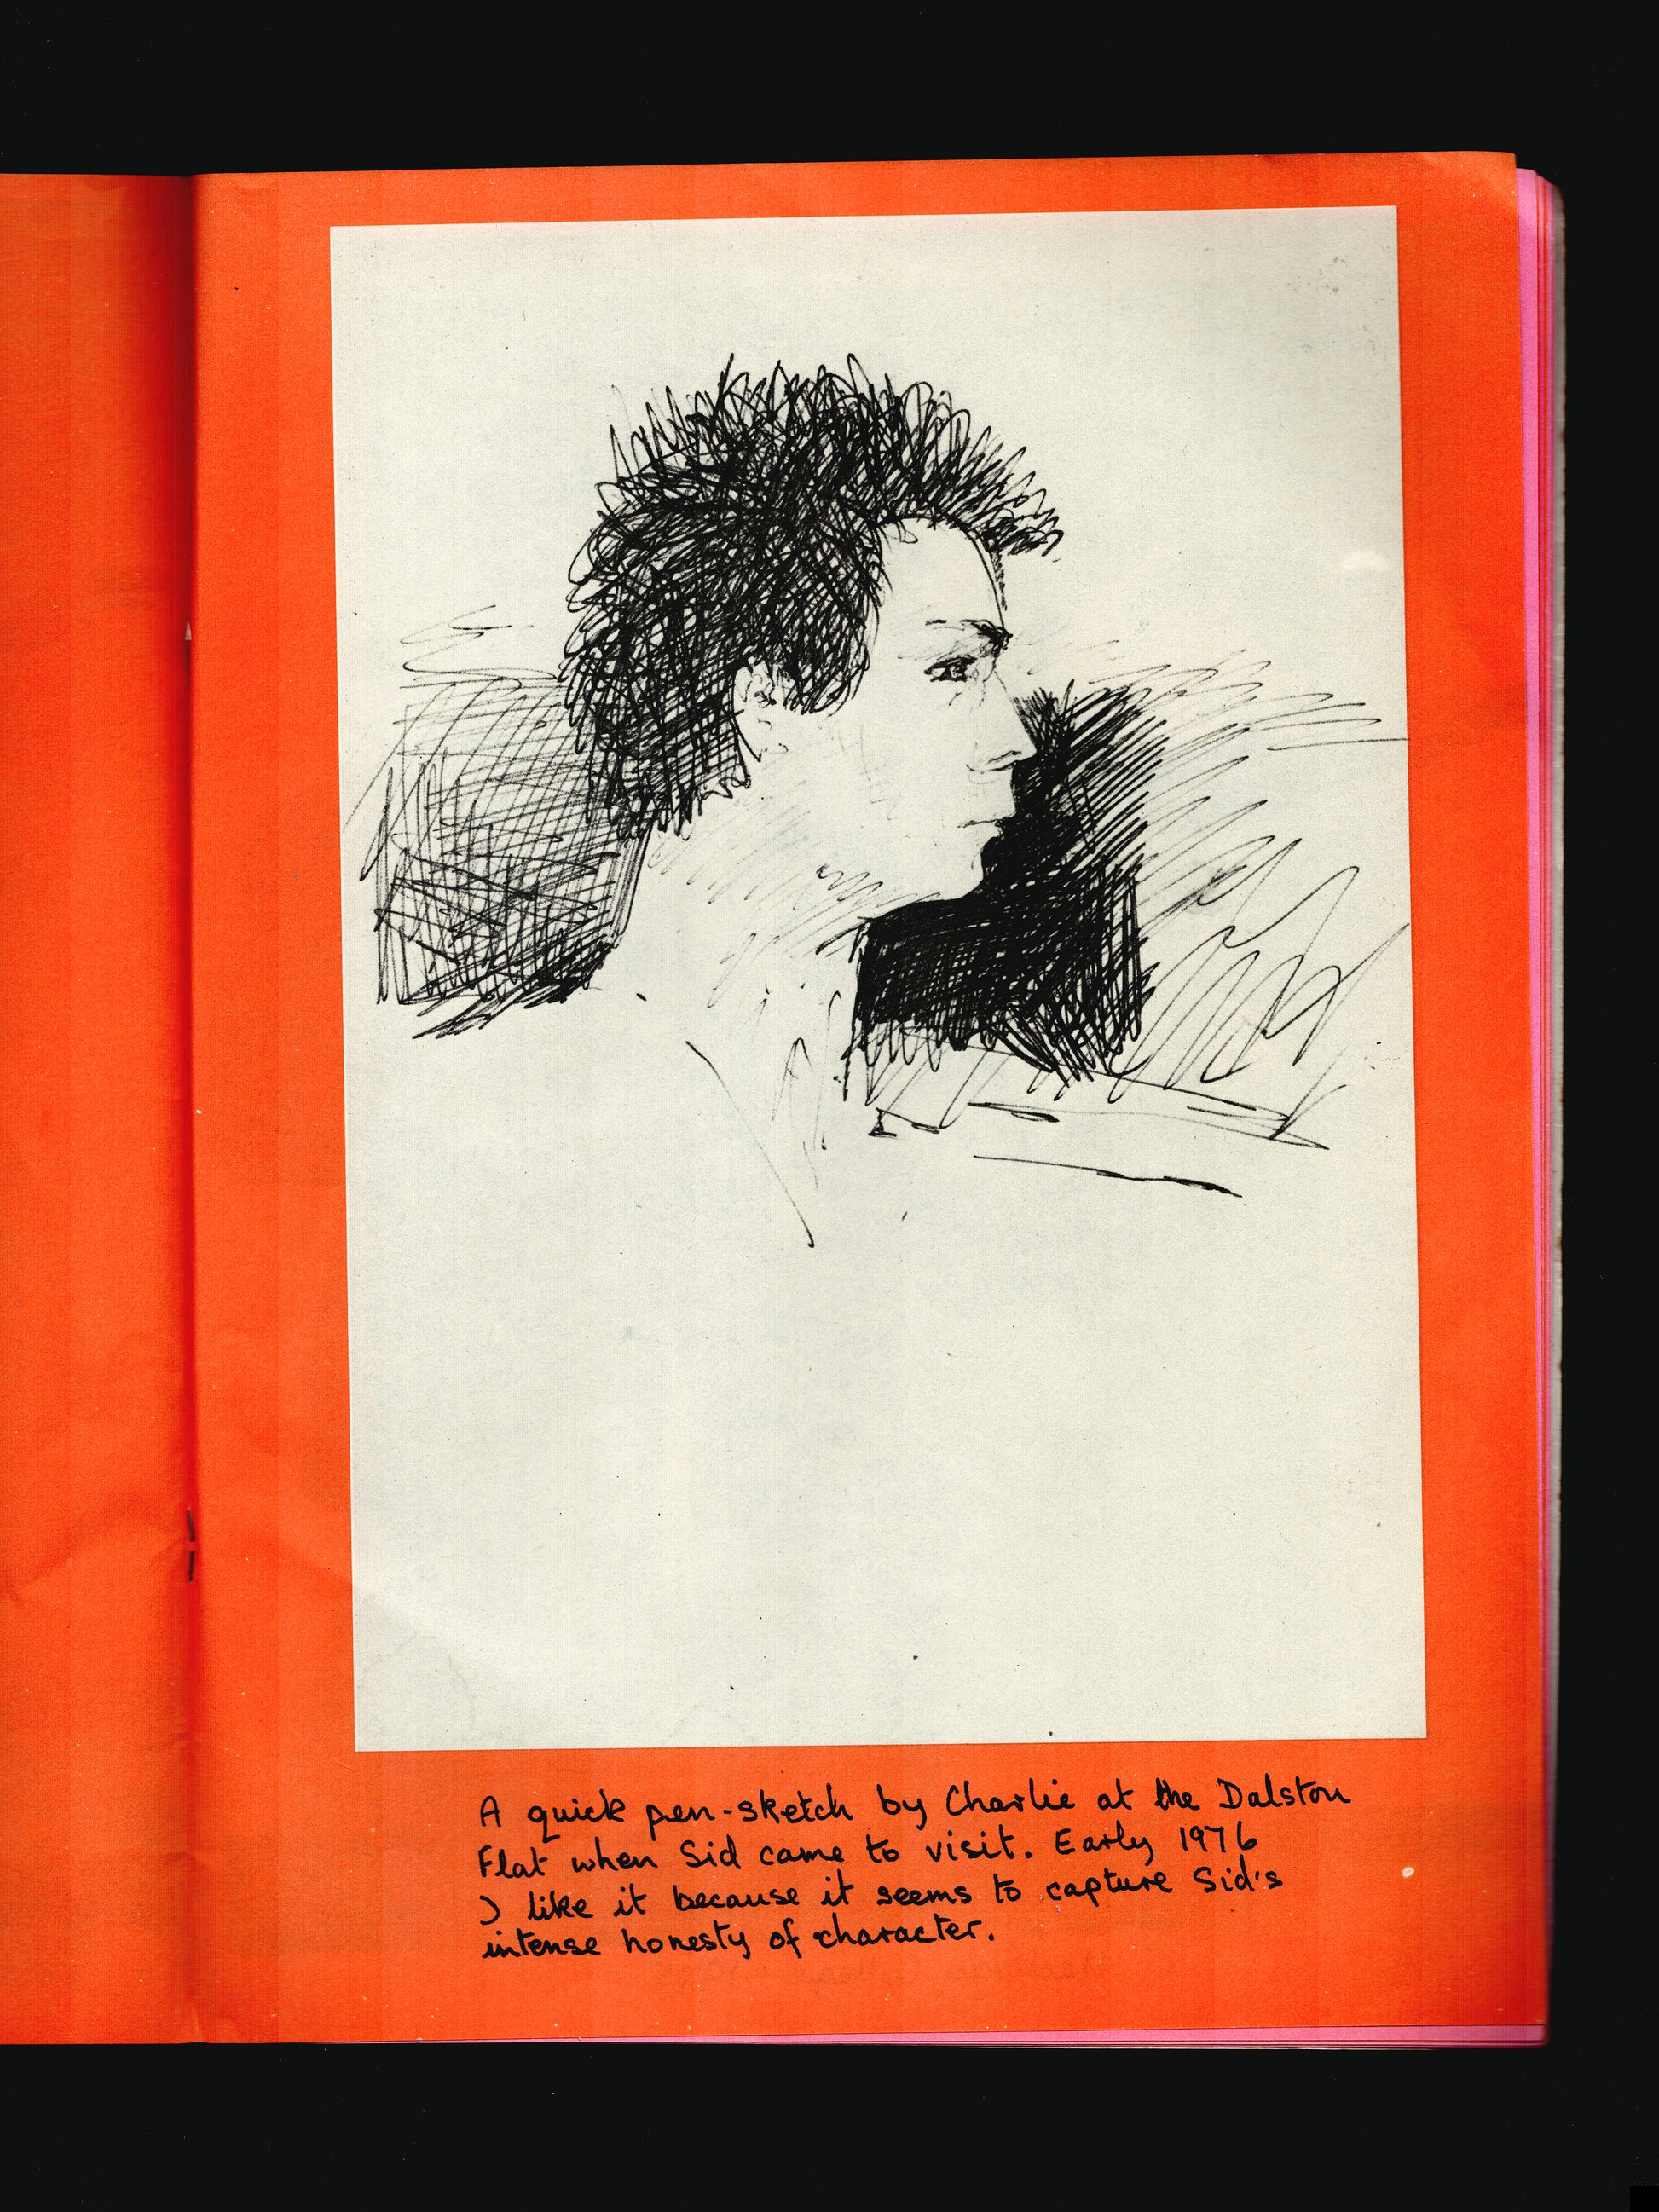 A quick pen-sketch by Charlie at the Dalston
Flat when Sid came to visit. Early 1976
I like it because it seems to capture Sid's
intense honesty of character.